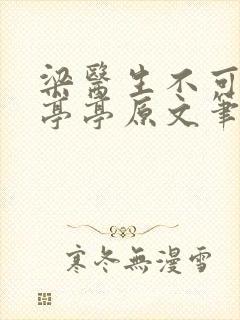 梁醫生不可
亭亭原文筆
寒冬無漫雪